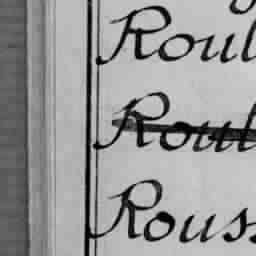 Roul
Roul
Rouss